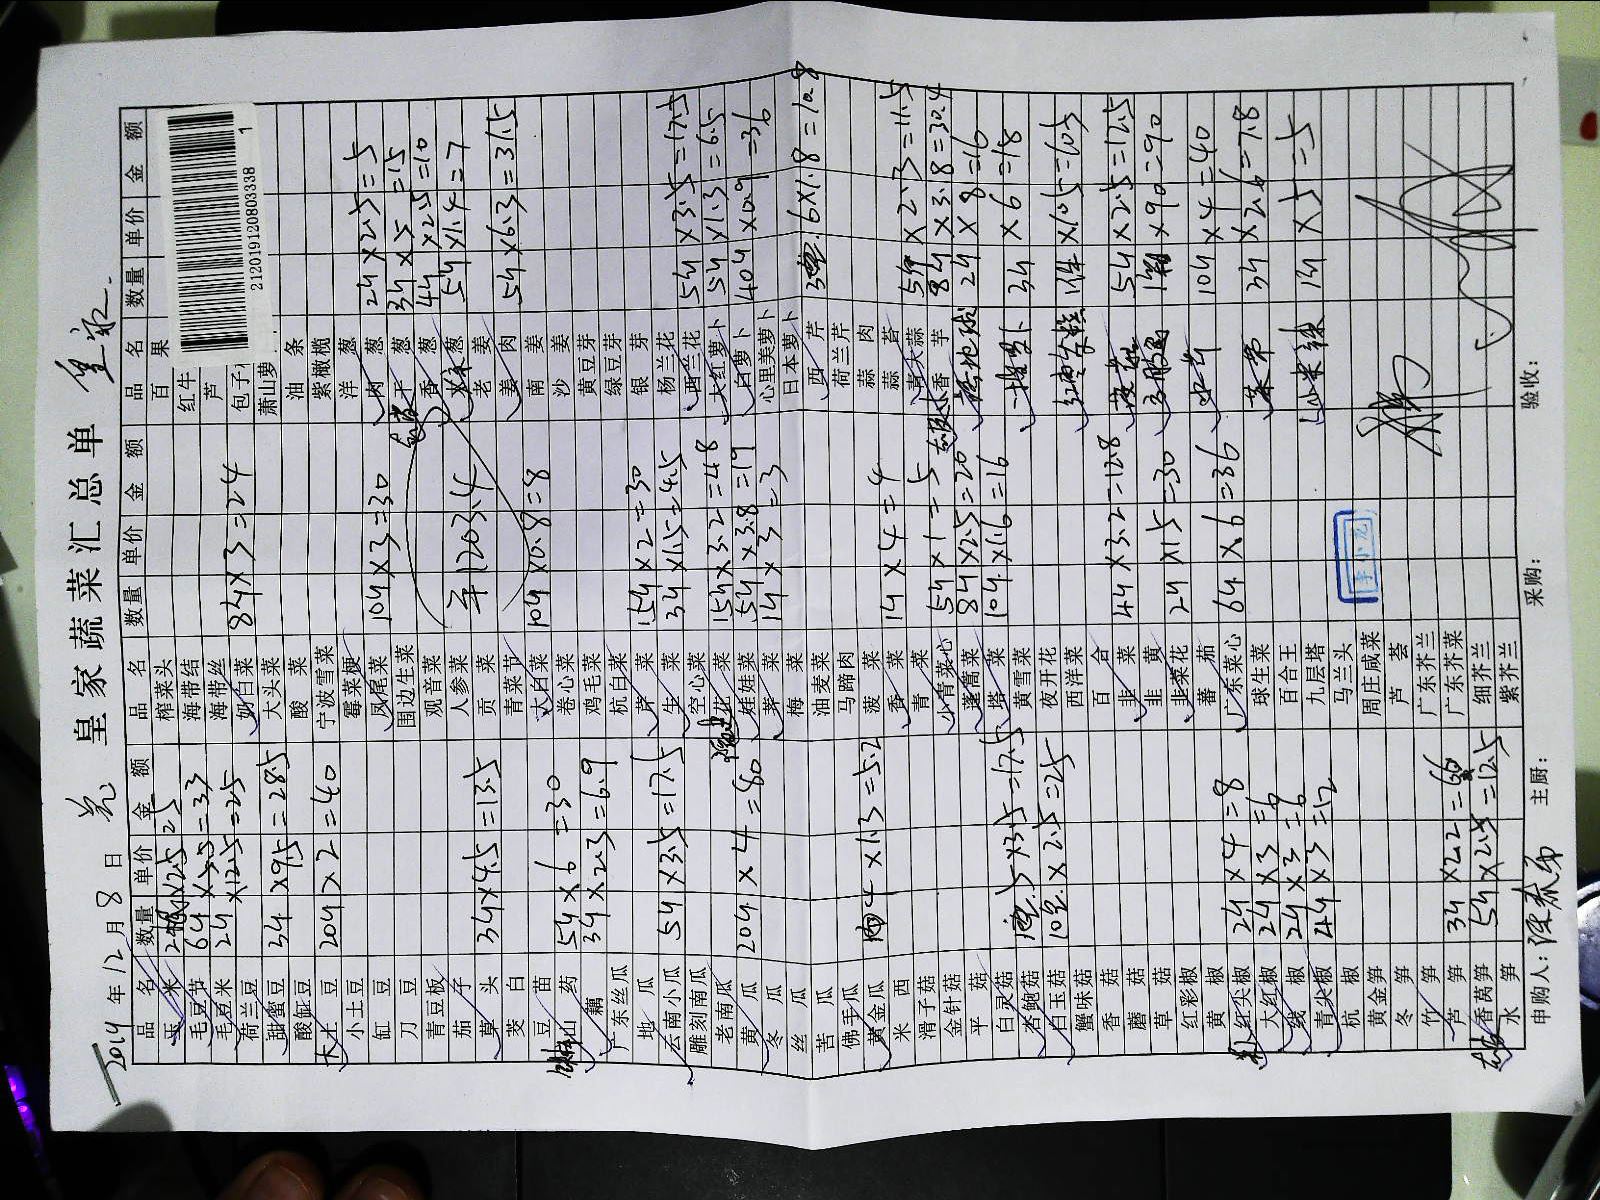 皇家蔬菜汇总单
2019年12月8日
品名 数量 单价 金额
玉米 ×2.5 25
毛豆节 6斤×5.5=33
毛豆米 2斤×12.5=25
荷兰豆
甜蜜豆 3斤×9.5=28.5
酸缸豆
大土豆 20斤×2=40
小土豆
缸豆
刀豆
青豆板
茄子
草头 3斤×4.5=13.5
茭白
豆苗
山药 5斤×6=30
藕 3斤×2.3=6.9
广东丝瓜
地瓜
云南小瓜 5斤×3.5=17.5
雕刻南瓜
老南瓜
黄瓜 20斤×4=80
冬瓜
丝瓜
苦瓜
佛手瓜
黄金瓜 4×1.3=5.2
米西
滑子菇
金针菇
平菇
白灵菇
杏鲍菇 5×3.5=17.5
白玉菇 10包×2.5=25
蟹味菇
香菇
蘑菇
草菇
红彩椒
黄椒
红尖椒 2斤×4=8
大红椒 2斤×3=6
线椒 2斤×3=6
青尖椒 4斤×3=12
杭椒
黄金笋
冬笋
竹笋
芦笋 3斤×22=66
香莴笋 5斤×2.5=12.5
水笋
品名 数量 单价 金额
榨菜头
海带结
海带丝
奶白菜 8斤×3=24
大头菜
酸菜
宁波雪菜
霉菜梗
凤尾菜 10斤×3=30
围边生菜
观音菜
人参菜 1203.4
贡菜
青菜节
大白菜 10斤×0.8=8
卷心菜
鸡毛菜
杭白菜
芽菜 15斤×2=30
生菜 3斤×1.5=4.5
空心菜
花菜 15斤×3.2=48
娃娃菜 5斤×3.8=19
芹菜 1斤×3=3
梅菜
油麦菜
马蹄肉
菠菜
香菜 1斤×4=4
青菜
小青菜心 5斤×1=5
蓬篙菜 8斤×2.5=20
塔菜 10斤×1.6=16
黄雪菜
夜开花
西洋菜
百合
韭菜 4斤×3.2=12.8
韭黄 2斤×15=30
韭菜花
蕃茄 6斤×6=36
广东菜心
球生菜
百合王
九层塔
马兰头
周庄咸菜
芦荟
广东芥兰
广东芥菜
细芥兰
紫芥兰
品名 数量 单价 金额
百果
红牛
芦
包子
萧山萝
油条
紫橄榄
洋葱 2斤×2.5=5
肉葱 3斤×5=15
干葱 4斤×2.5=10
香葱 5斤×1.4=7
老姜
姜肉 5斤×6.3=31.5
南姜
沙姜
黄豆芽
绿豆芽
银芽
杨兰花
西兰花 5斤×3.5=17.5
大红萝卜 5斤×1.3=6.5
白萝卜 40斤×0.9=36
心里美萝卜
日本萝卜
西芹 6×1.8=10.8
荷兰芹
蒜肉
蒜苔
青大蒜 5斤×2.3=11.5
香芋 8斤×3.8=30.4
2斤×8=16
3斤×6=18
1件×105=105
5斤×2.5=12.5
×90=90
10斤×4=40
3斤×2.6=7.8
山米辣 1斤×5=5
212019120803338
1
申购人:
主厨:
采购:
验收: